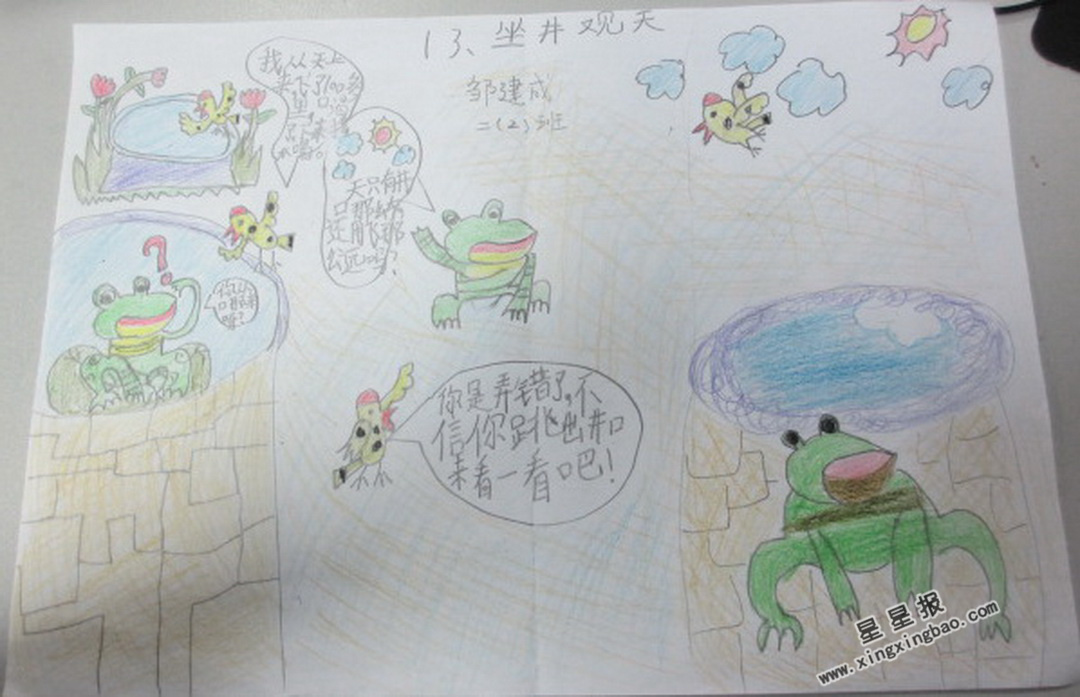 13、坐井观天
邹建成
二(2)班
我从天上
来下了100多
里,口渴
水喝。
天只有井
口那么
还用飞那
么远吗?
你从
你是弄错了,不
信你跳出井口
来看一看吧!
星星报
www.xingxingbao.com